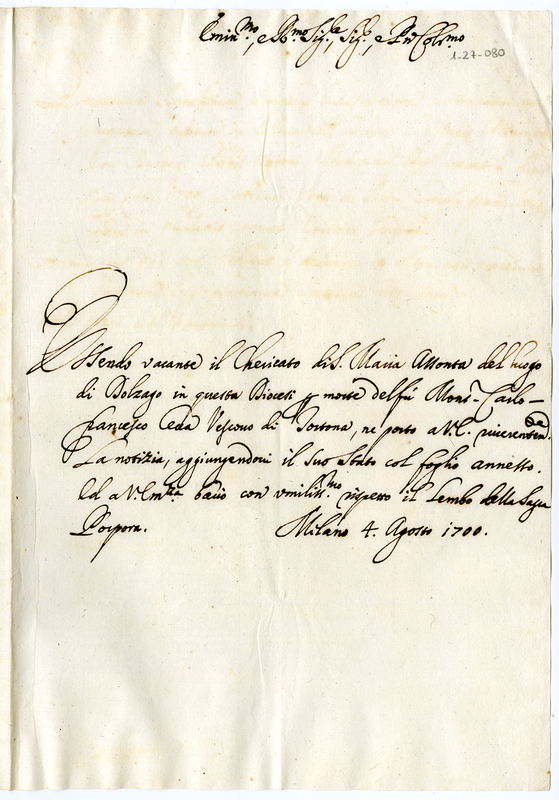 Emin.mo, e R.mo Sig.re, Sig.r, e P.ron Col.mo
1-27-080
Essendo vacante il Chericato di S. Maria Assonta del luogo
di Bolzago in questa Diocesi p morte del fù Mons.r Carlo
Francesco Ceda Vescovo di Tortona, ne porto a V.E. riverentem.te
La notizia, aggiungendovi il suo stato col foglio annesso.
Ed a V. Em.za bacio con umiliss.mo rispetto il Lembo della Sagra
Porpora. Milano 4. Agosto 1700.